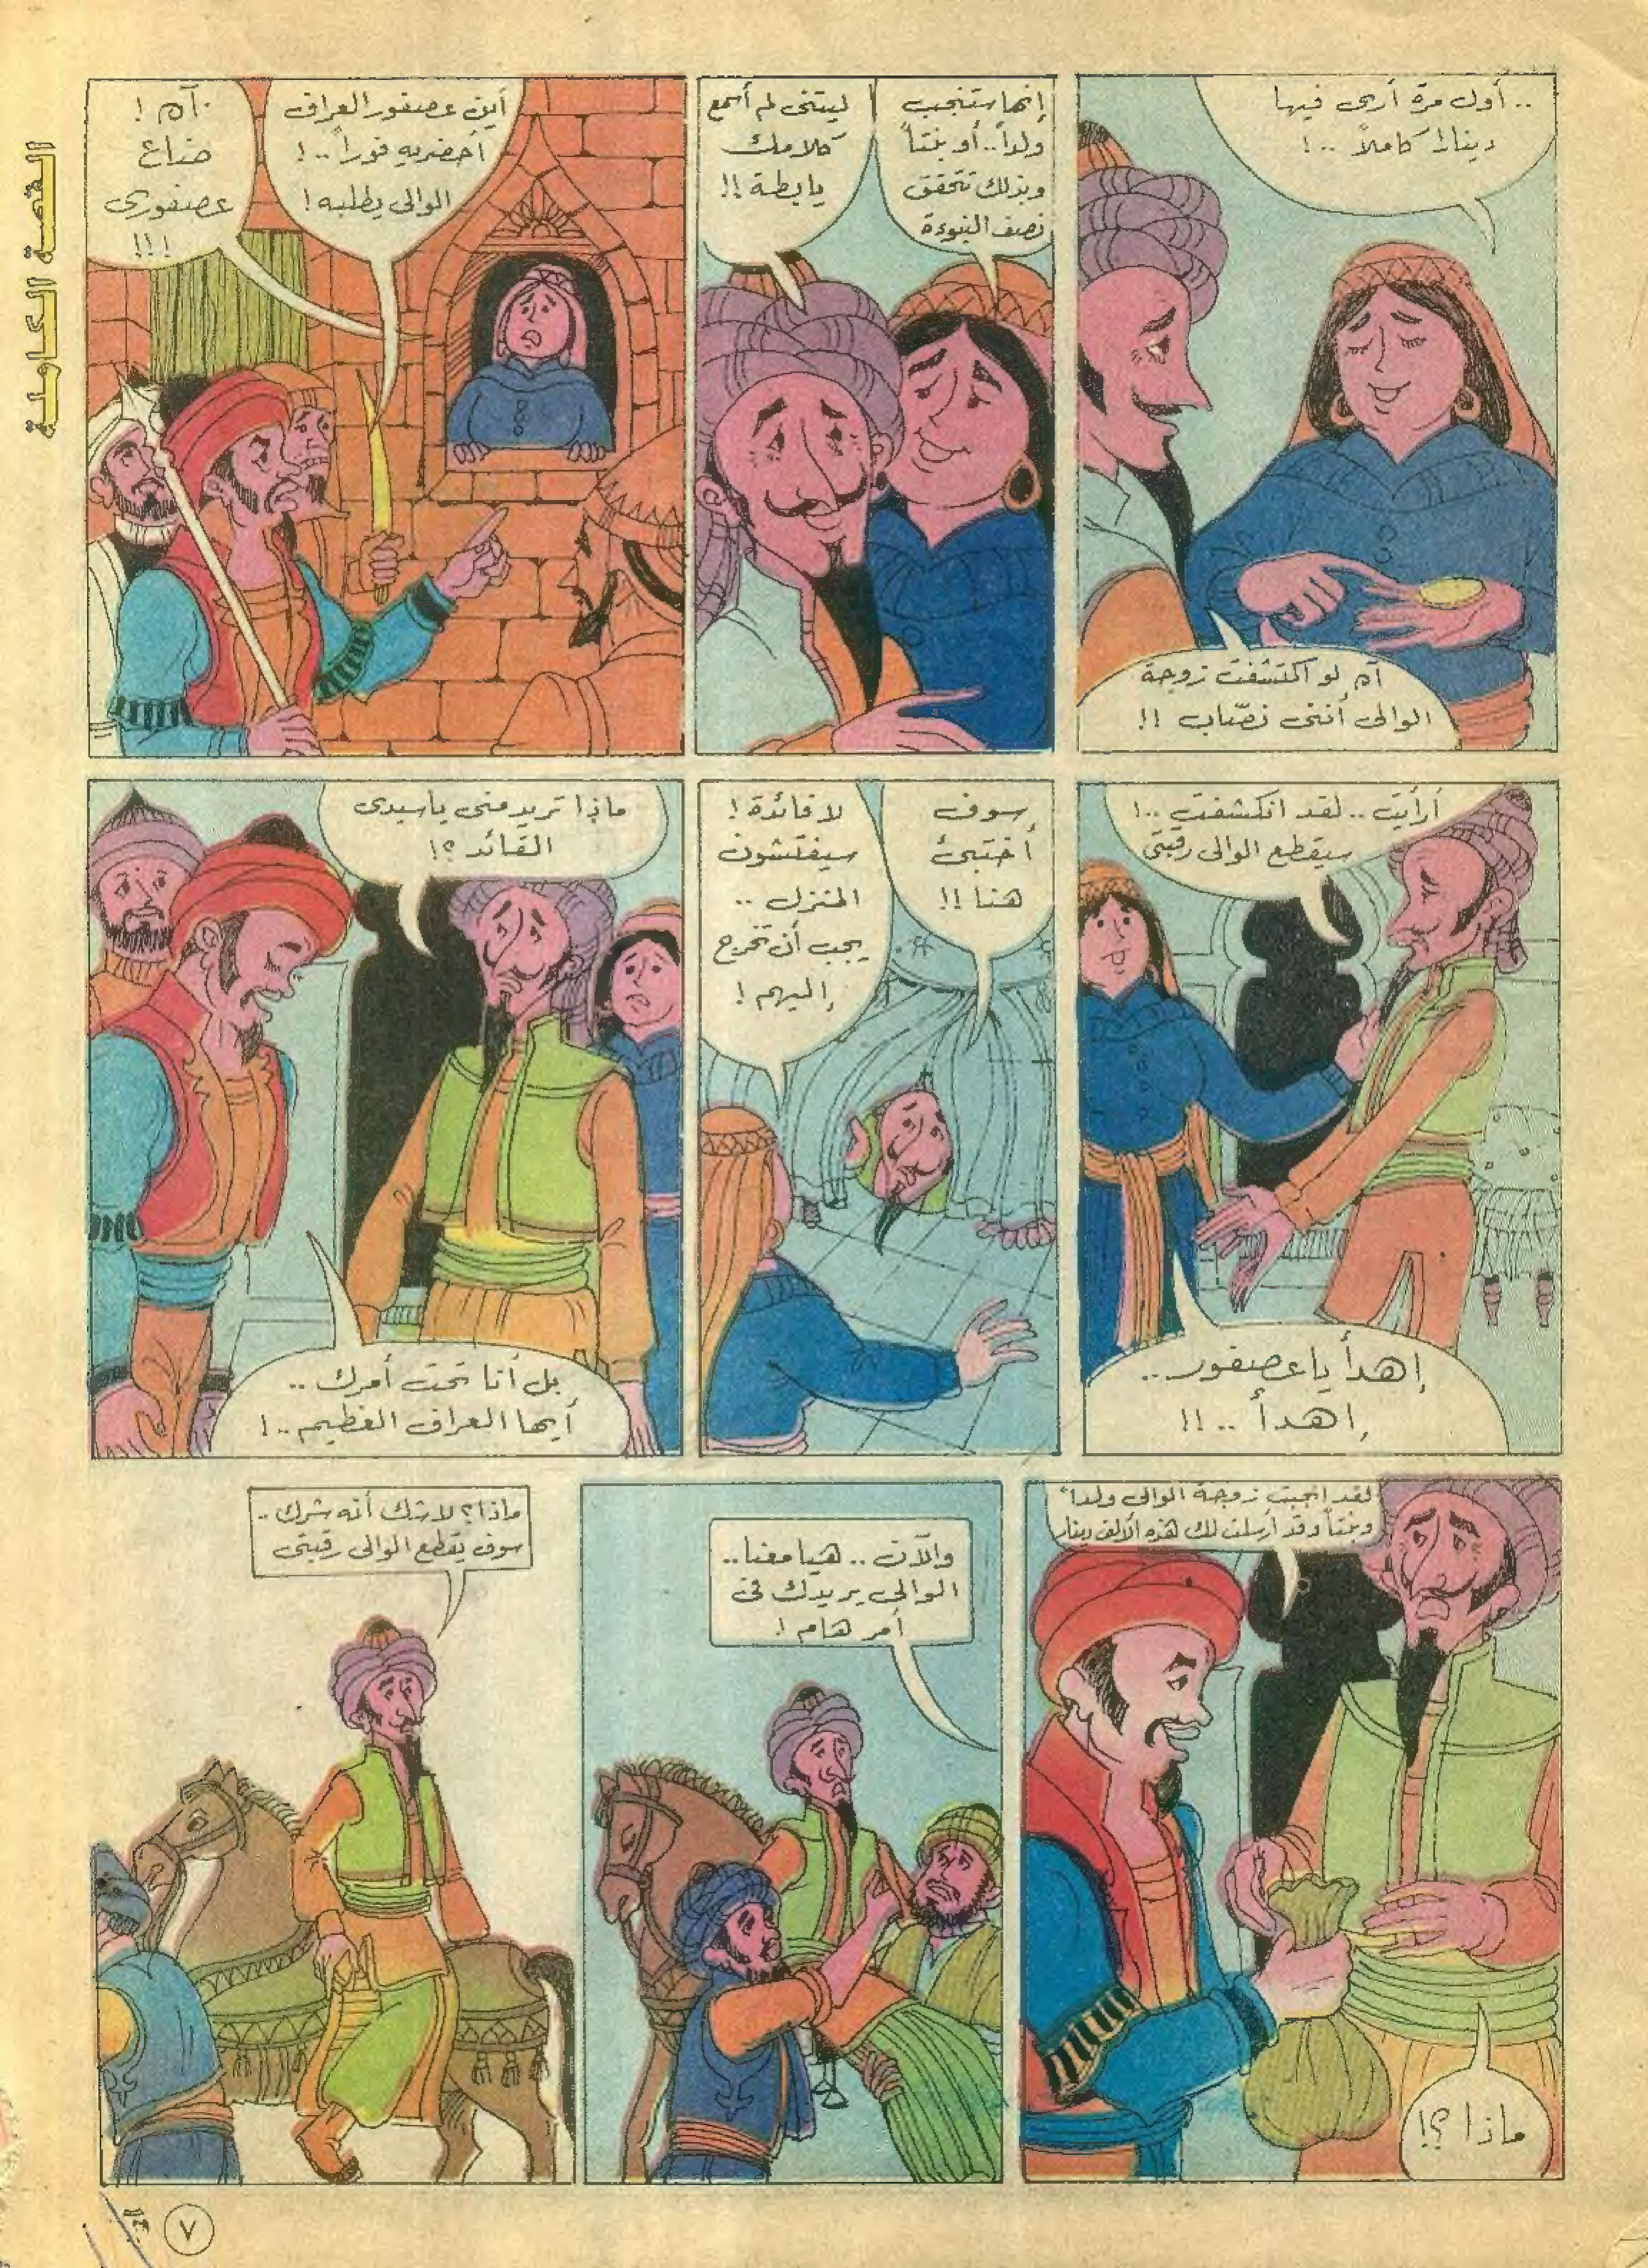 القصة الكاملة
.. أول مرة أرى فيها
ديناراً كاملاً ..!
آه لو اكتشفت زوجة
الوالى أننى نصّاب !!
إنها ستنجب
ولداً.. أو بنتاً
وبذلك تتحقق
نصف النبوءة
ليتنى لم أسمع
كلامك
يا بطة !!
أين عصفور العراف
أحضريه فوراً ..!
الوالى يطلبه !
آه !
ضاع
عصفورى
!!!
أرأيت .. لقد انكشفت ..!
سيقطع الوالى رقبتى
إهدأ يا عصفور ..
إهدأ .. !!
سوف
أختبئ
هنا !!
لا فائدة !
سيفتشون
المنزل ..
يجب أن تخرج
إليهم !
ماذا تريد منى يا سيدى
القائد ؟!
بل أنا تحت أمرك ..
أيها العراف العظيم ..!
لقد انجبت زوجة الوالى ولداً
وبنتاً وقد أرسلت لك هذه الألف دينار
ماذا ؟!
والآن .. هيا معنا ..
الوالى يريدك فى
أمر هام !
ماذا ؟ لا شك أنه شرك ..
سوف يقطع الوالى رقبتى
٧